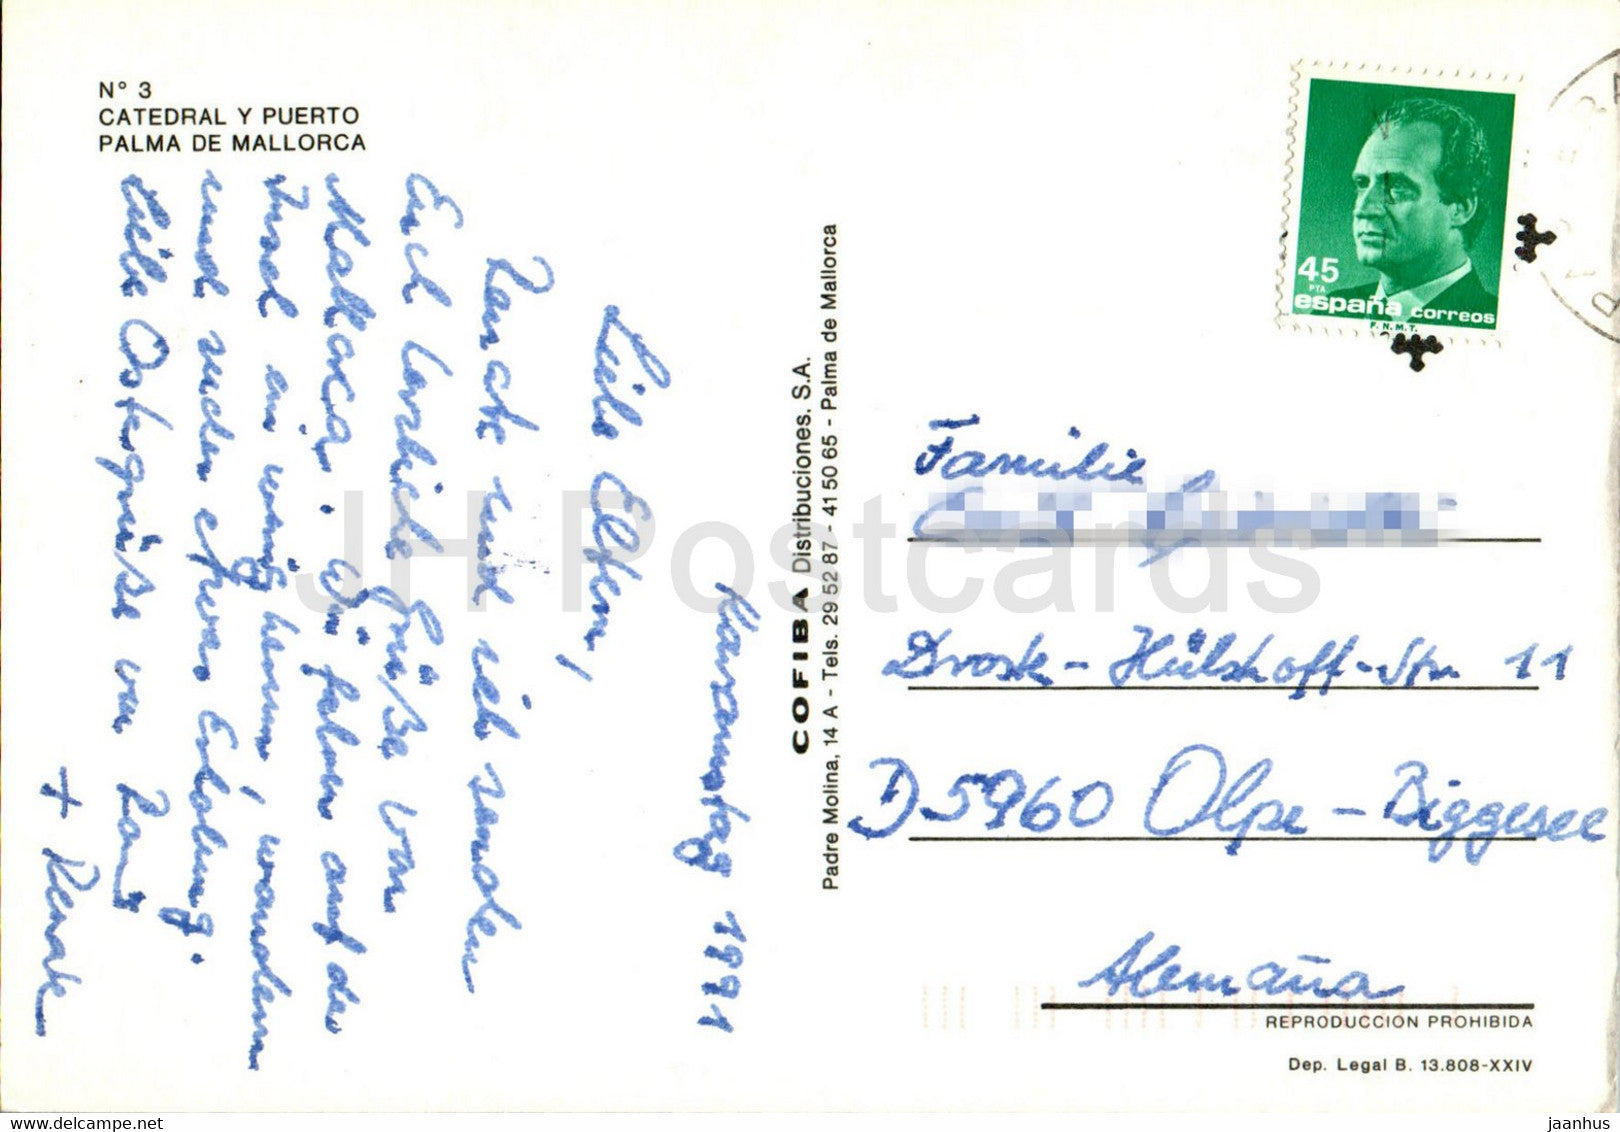 N° 3
CATEDRAL Y PUERTO
PALMA DE MALLORCA
Karsamstag 1991
Liebe Eltern,
Renate und ich senden
Euch herzliche Grüße von
Mallorca. Wir fahren auf der
Insel ein wenig herum, wandern
und suchen etwas Erholung.
Liebe Ostergrüße von
+ Renate
COFIBA Distribuciones. S.A.
Padre Molina, 14 A - Tels. 29 52 87 - 41 50 65 - Palma de Mallorca
45
PTA
españa correos
F.N.M.T.
Familie
Droste-Hülshoff-Str. 11
D 5960 Olpe-Biggesee
Alemaña
REPRODUCCION PROHIBIDA
Dep. Legal B. 13.808-XXIV
JH Postcards
jaanhus
delcampe.net